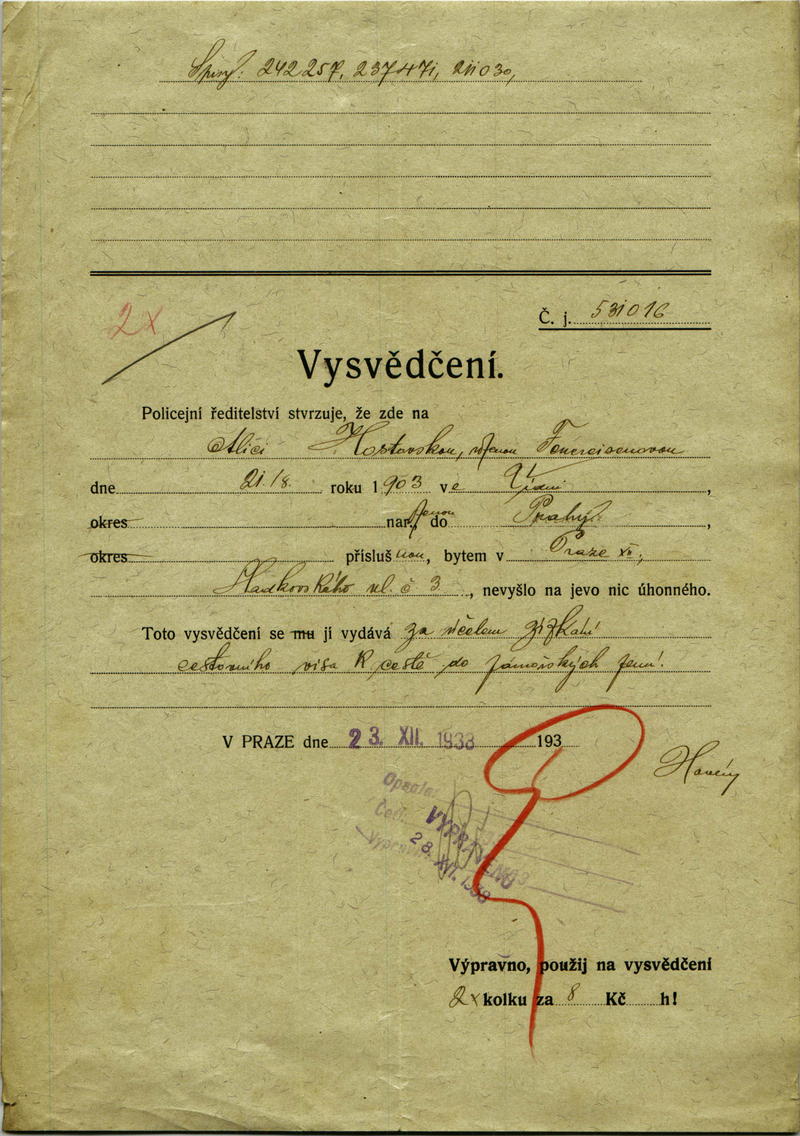 242257, 237471,
2x
Č. j. 531016
Vysvědčení.
Policejní ředitelství stvrzuje, že zde na
Alici Hostovskou,
dne 21/8. roku 1903 ve Vídni,
okres narozenou do Prahy,
okres přísluš nou, bytem v Praze XII,
Hradkovského ul. č 3, nevyšlo na jevo nic úhonného.
Toto vysvědčení se mu jí vydává za účelem získání
cestovního visa k cestě do zámořských zemí.
V PRAZE dne 23. XII. 1938 193
Opsala:
Četl:
Vypraveno
VYPRAVENO
28. XII. 1938
Výpravno, použij na vysvědčení
2x kolku za 8 Kč h!